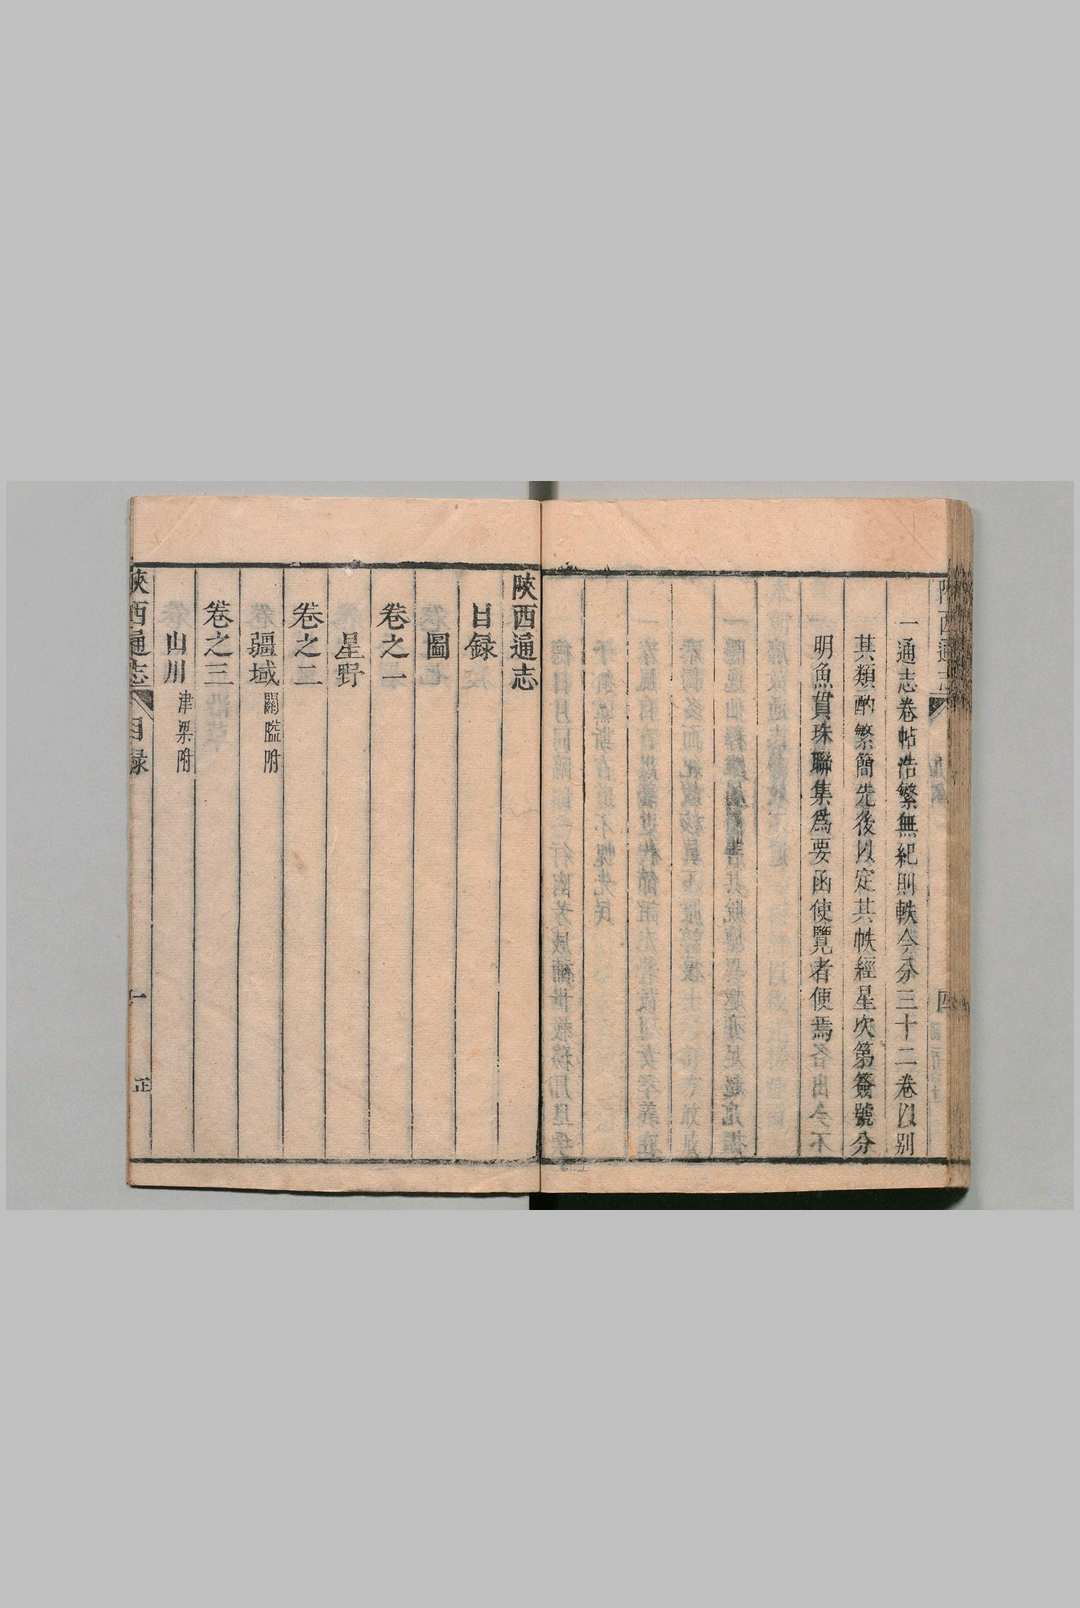 一通志卷帖浩繁無紀則軼今分三十二卷以別
其類酌繁簡先後以定其帙經星次第簽號分
明魚貫珠聯集爲要函使覽者便焉
陝西通志
目録
圖
卷之一
星野
卷之二
疆域 關隘附
卷之三
山川 津梁附
陝西通志 目録 一